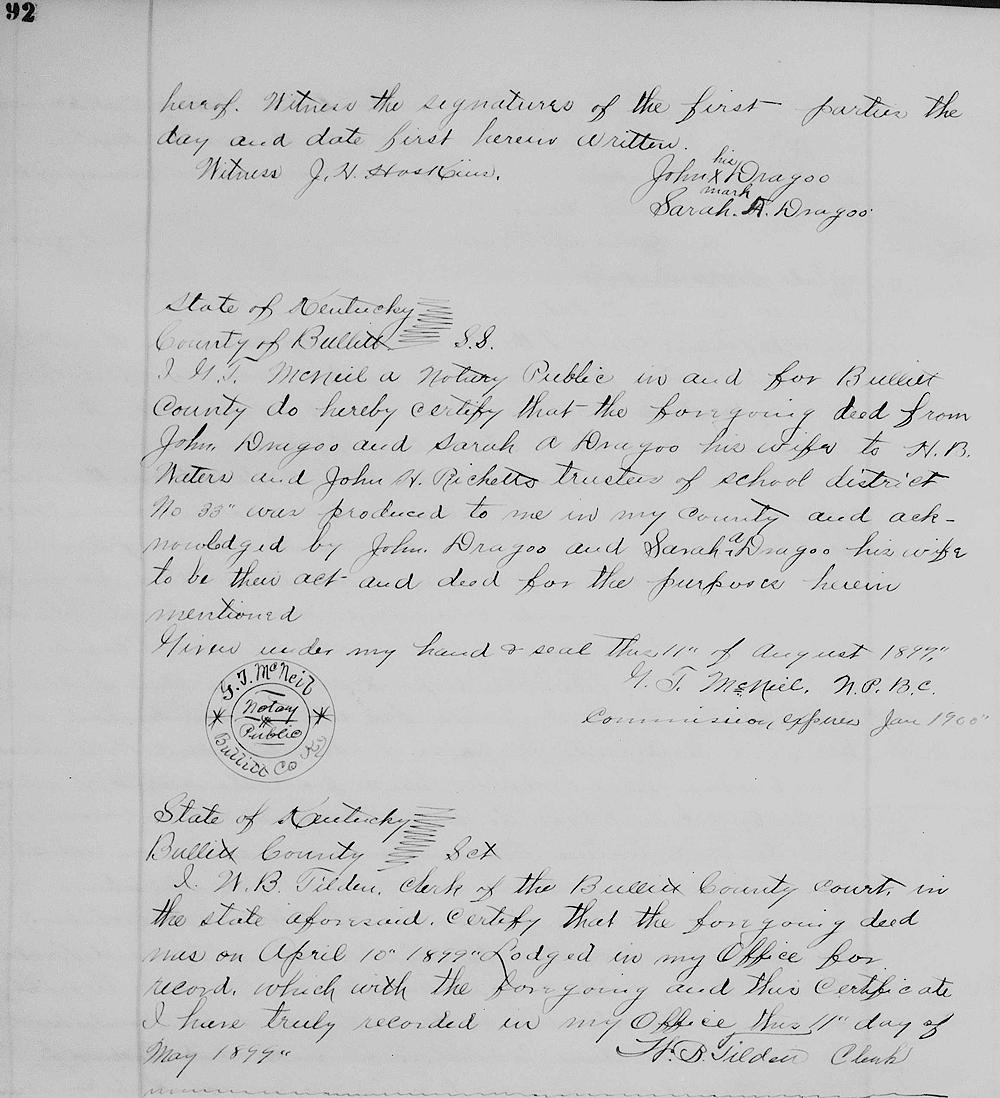 92
hereof. Witness the signatures of the first parties the
day and date first herein written.
Witness J. H. Hoskins.
his
John X Dragoo
mark
Sarah. A. Dragoo
State of Kentucky
County of Bullitt S.S.
I G. T. McNeil a Notary Public in and for Bullitt
County do hereby certify that the foregoing deed from
John. Dragoo and Sarah A Dragoo his wife to H. B.
Waters and John W. Ricketts trustees of school district
No 33" was produced to me in my county and ack-
nowledged by John. Dragoo and Sarah A Dragoo his wife
to be their act and deed for the purposes herein
mentioned
Given under my hand & seal this 11" of August 1897"
G. T. McNeil. N. P. B. C.
Commission, expires Jan 1900"
G. T. McNeil
Notary
Public
Bullitt Co Ky
State of Kentucky
Bullitt County Sct
I. W. B. Tilden. Clerk of the Bullitt County court. in
the state aforesaid. Certify that the foregoing deed
was on April 10" 1899" Lodged in my Office for
record. which with the foregoing and this Certificate
I have truly recorded in my Office this 11" day of
May 1899"
W. B. Tilden Clerk